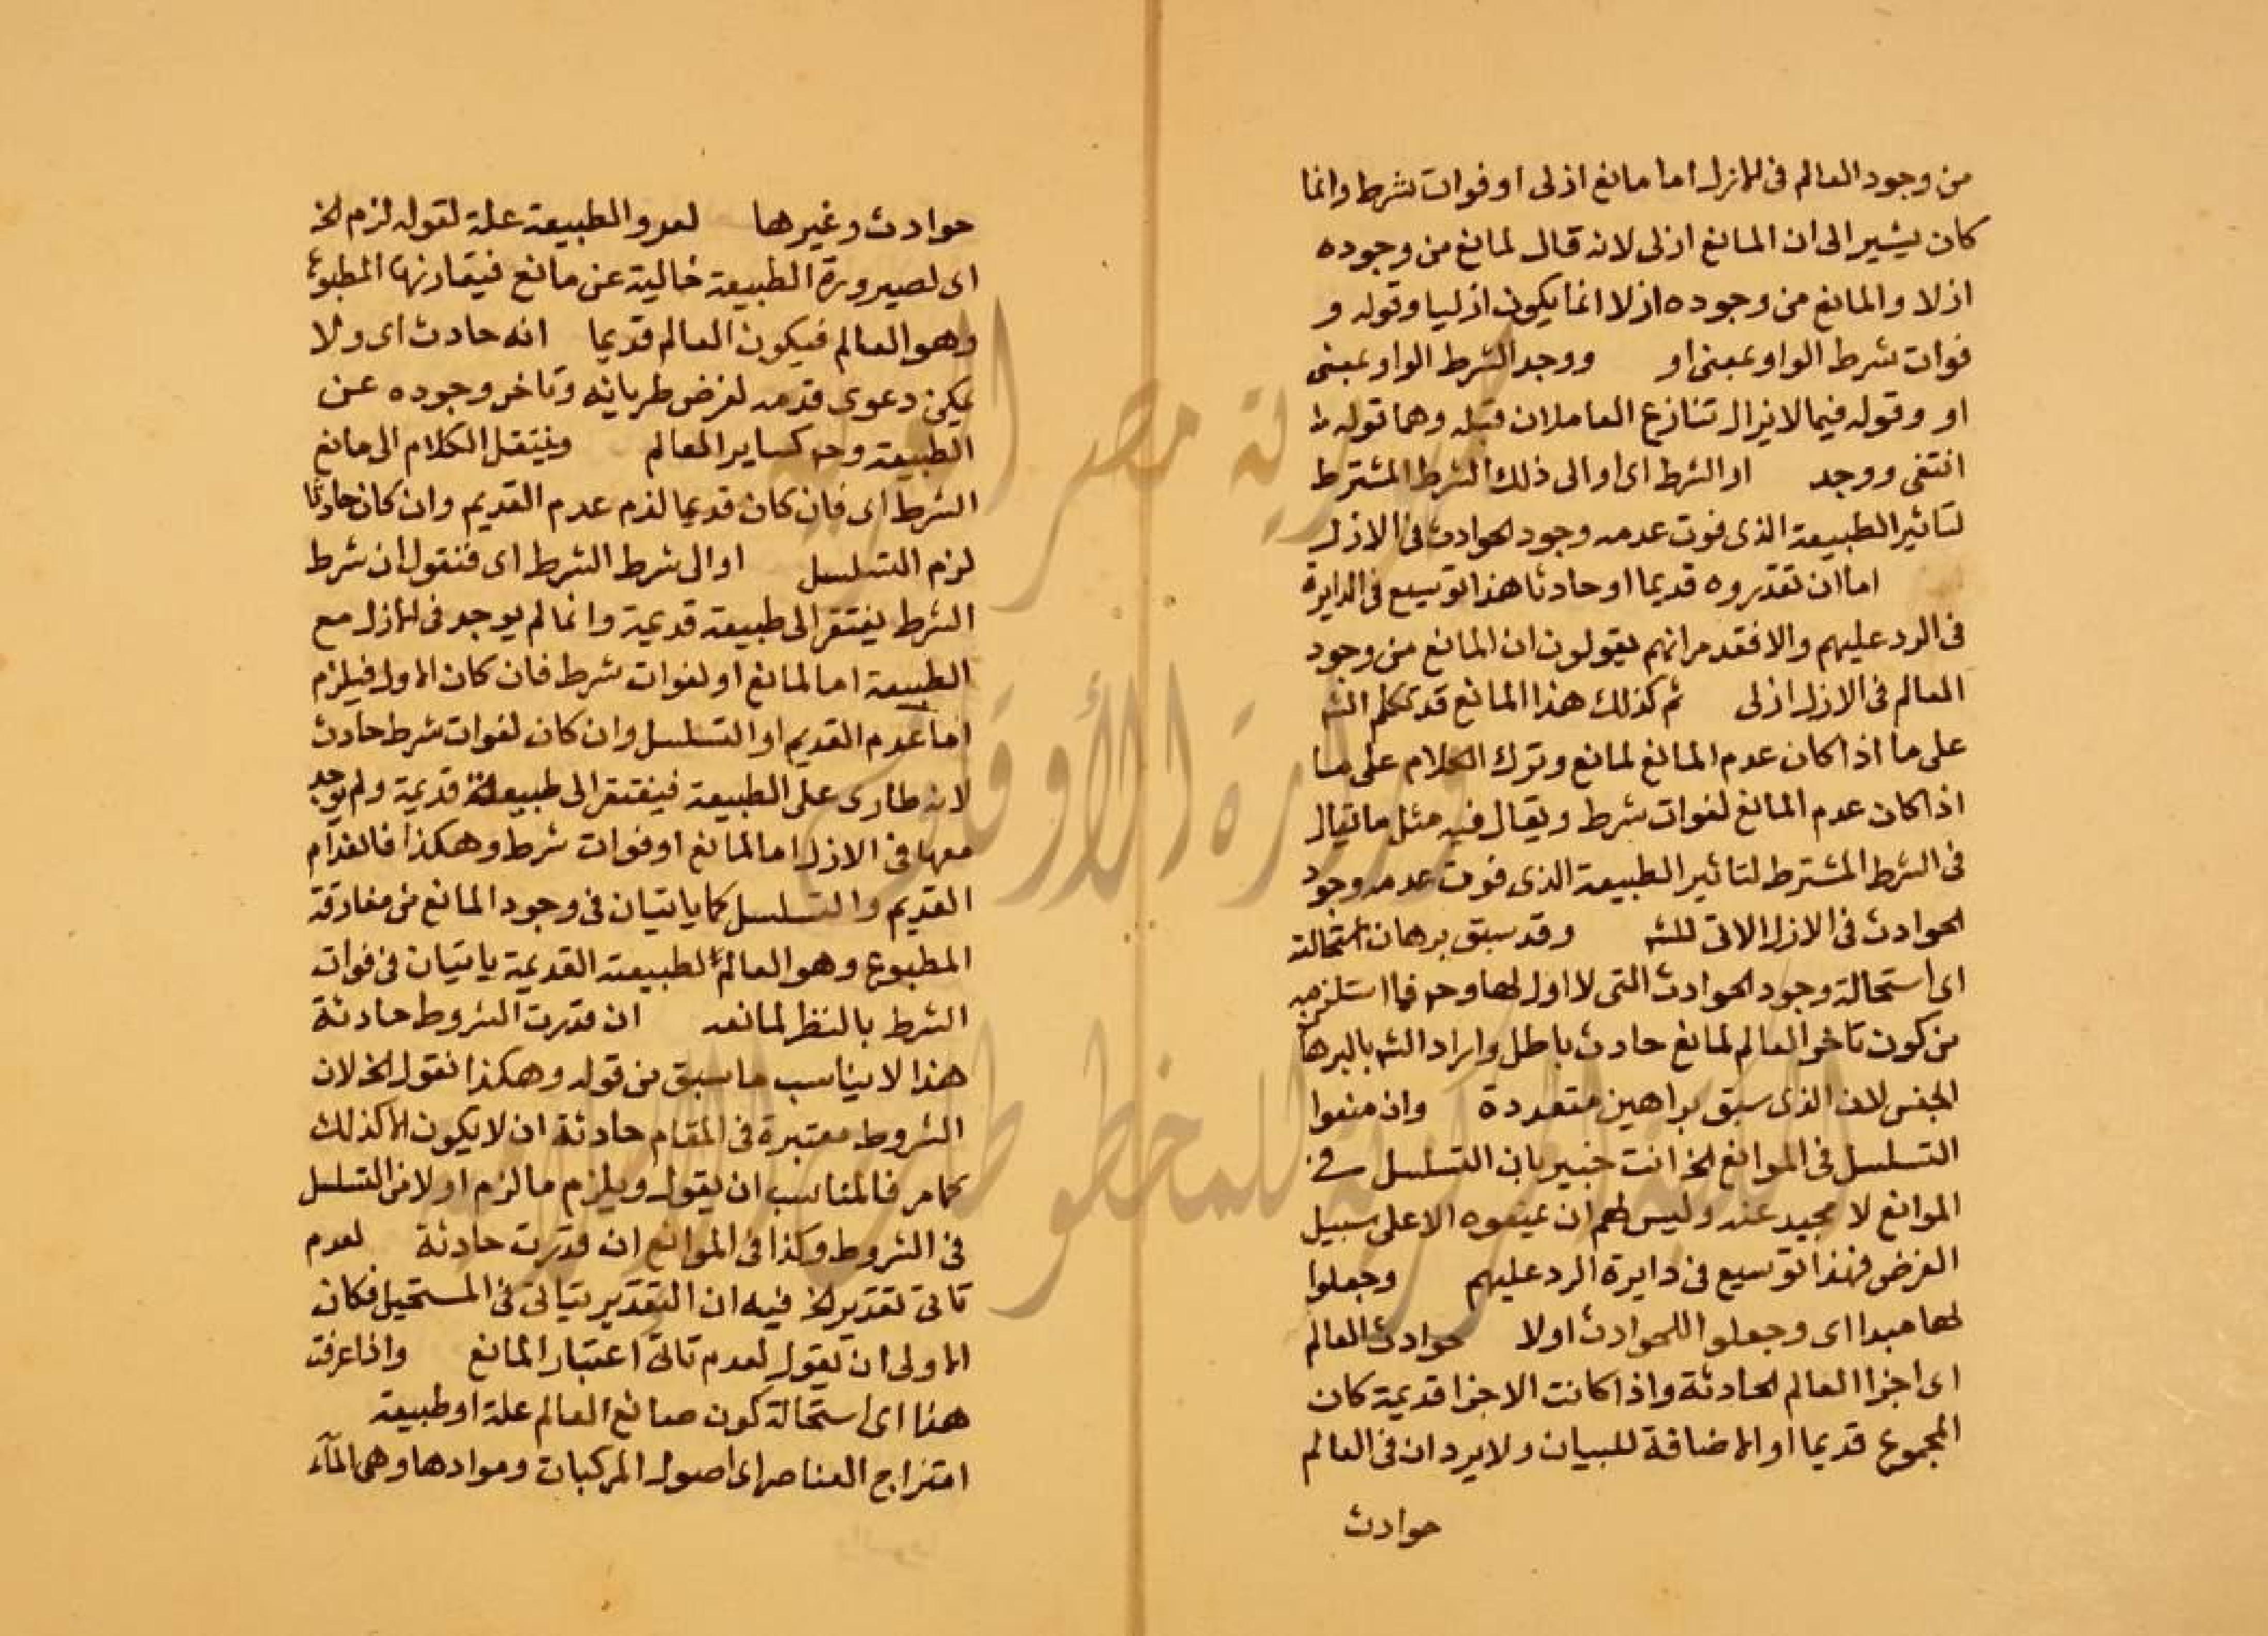 من وجود العالم فى الازل اما مانع ازلى او فوات شرط وانما
كان يشير الى ان المانع ازلى لانه قال لمانع من وجوده
ازلا والمانع من وجوده ازلا انما يكون ازليا وقوله و
فوات شرط الواو بمعنى او ووجد الشرط الواو بمعنى
او وقوله فيما لايزال تنازع العاملان قبله وهما قوله
انتفى ووجد او الشرط اى او الى ذلك الشرط المشترط
لتاثير الطبيعة الذى فوت عدمه وجود الحوادث فى الازل
اما ان تقدروه قديما او حادثا هذا توسيع فى الدايرة
فى الرد عليهم والا فقد مر انهم يقولون ان المانع من وجود
العالم فى الازل ازلى ثم كذلك هذا المانع قد تكلم الشه
على ما اذا كان عدم المانع لمانع وترك الكلام على ما
اذا كان عدم المانع لفوات شرط ويقال فيه مثل ما يقال
فى الشرط المشترط لتاثير الطبيعة الذى فوت عدمه وجود
الحوادث فى الازل الاتى للشه وقد سبق برهان استحالته
اى استحالة وجود الحوادث التى لا اول لها وحـ فما استلزمه
من كون تاخر العالم لمانع حادث باطل واراد الشه بالبرهان
الجنس لان الذى سبق براهين متعددة وان منعوا
التسلسل فى الموانع الخ انت خبير بان التسلسل فى
الموانع لا محيد عنه وليس لهم ان يمنعوه الا على سبيل
الفرض فهذا توسيع فى دايرة الرد عليهم وجعلوا
لها مبدا اى وجعلوا للحوادث اولا حوادث العالم
اى اجزا العالم الحادثة واذا كانت الاجزا قديمة كان
المجموع قديما او الاضافة للبيان ولا يرد ان فى العالم
حوادث
حوادث وغيرها لعرو الطبيعة علة لقوله لزم الخ
اى لصيرورة الطبيعة خالية عن مانع فيقارنها المطبوع
وهو العالم فيكون العالم قديما انه حادث اى ولا
يمكن دعوى قدمه لفرض طريانه وتاخر وجوده عن
الطبيعة وحـ كساير العالم وينتقل الكلام الى مانع
الشرط اى فان كان قديما لزم عدم القديم وان كان حادثا
لزم التسلسل او الى شرط الشرط اى فنقول ان شرط
الشرط يفتقر الى طبيعة قديمة وانما لم يوجد فى الازل مع
الطبيعة اما لمانع او لفوات شرط فان كان الاول فيلزم
اما عدم القديم او التسلسل وان كان لفوات شرط حادث
لانه طارى على الطبيعة فيفتقر الى طبيعة قديمة ولم يوجد
معها فى الازل اما لمانع او فوات شرط وهكذا فانعدام
القديم والتسلسل كما ياتيان فى وجود المانع من مفارقة
المطبوع وهو العالم للطبيعة القديمة ياتيان فى فوات
الشرط بالنظر لمانعه ان قدرت الشروط حادثة
هذا لا يناسب ما سبق من قوله وهكذا نقول الخ لان
الشروط معتبرة فى المقام حادثة ان لا يكون الا كذلك
كما مر فالمناسب ان يقول ويلزم ما لزم اولا من التسلسل
فى الشروط وكذا فى الموانع ان قدرت حادثة لعدم
تاتى تقدير الخ فيه ان التقدير يتاتى فى المستحيل فكان
الاولى ان يقول لعدم تاتى اعتبار المانع واذا عرفت
هذا اى استحالة كون صانع العالم علة او طبيعة
امتزاج العناصر اى اصول المركبات وموادها وهى المآء